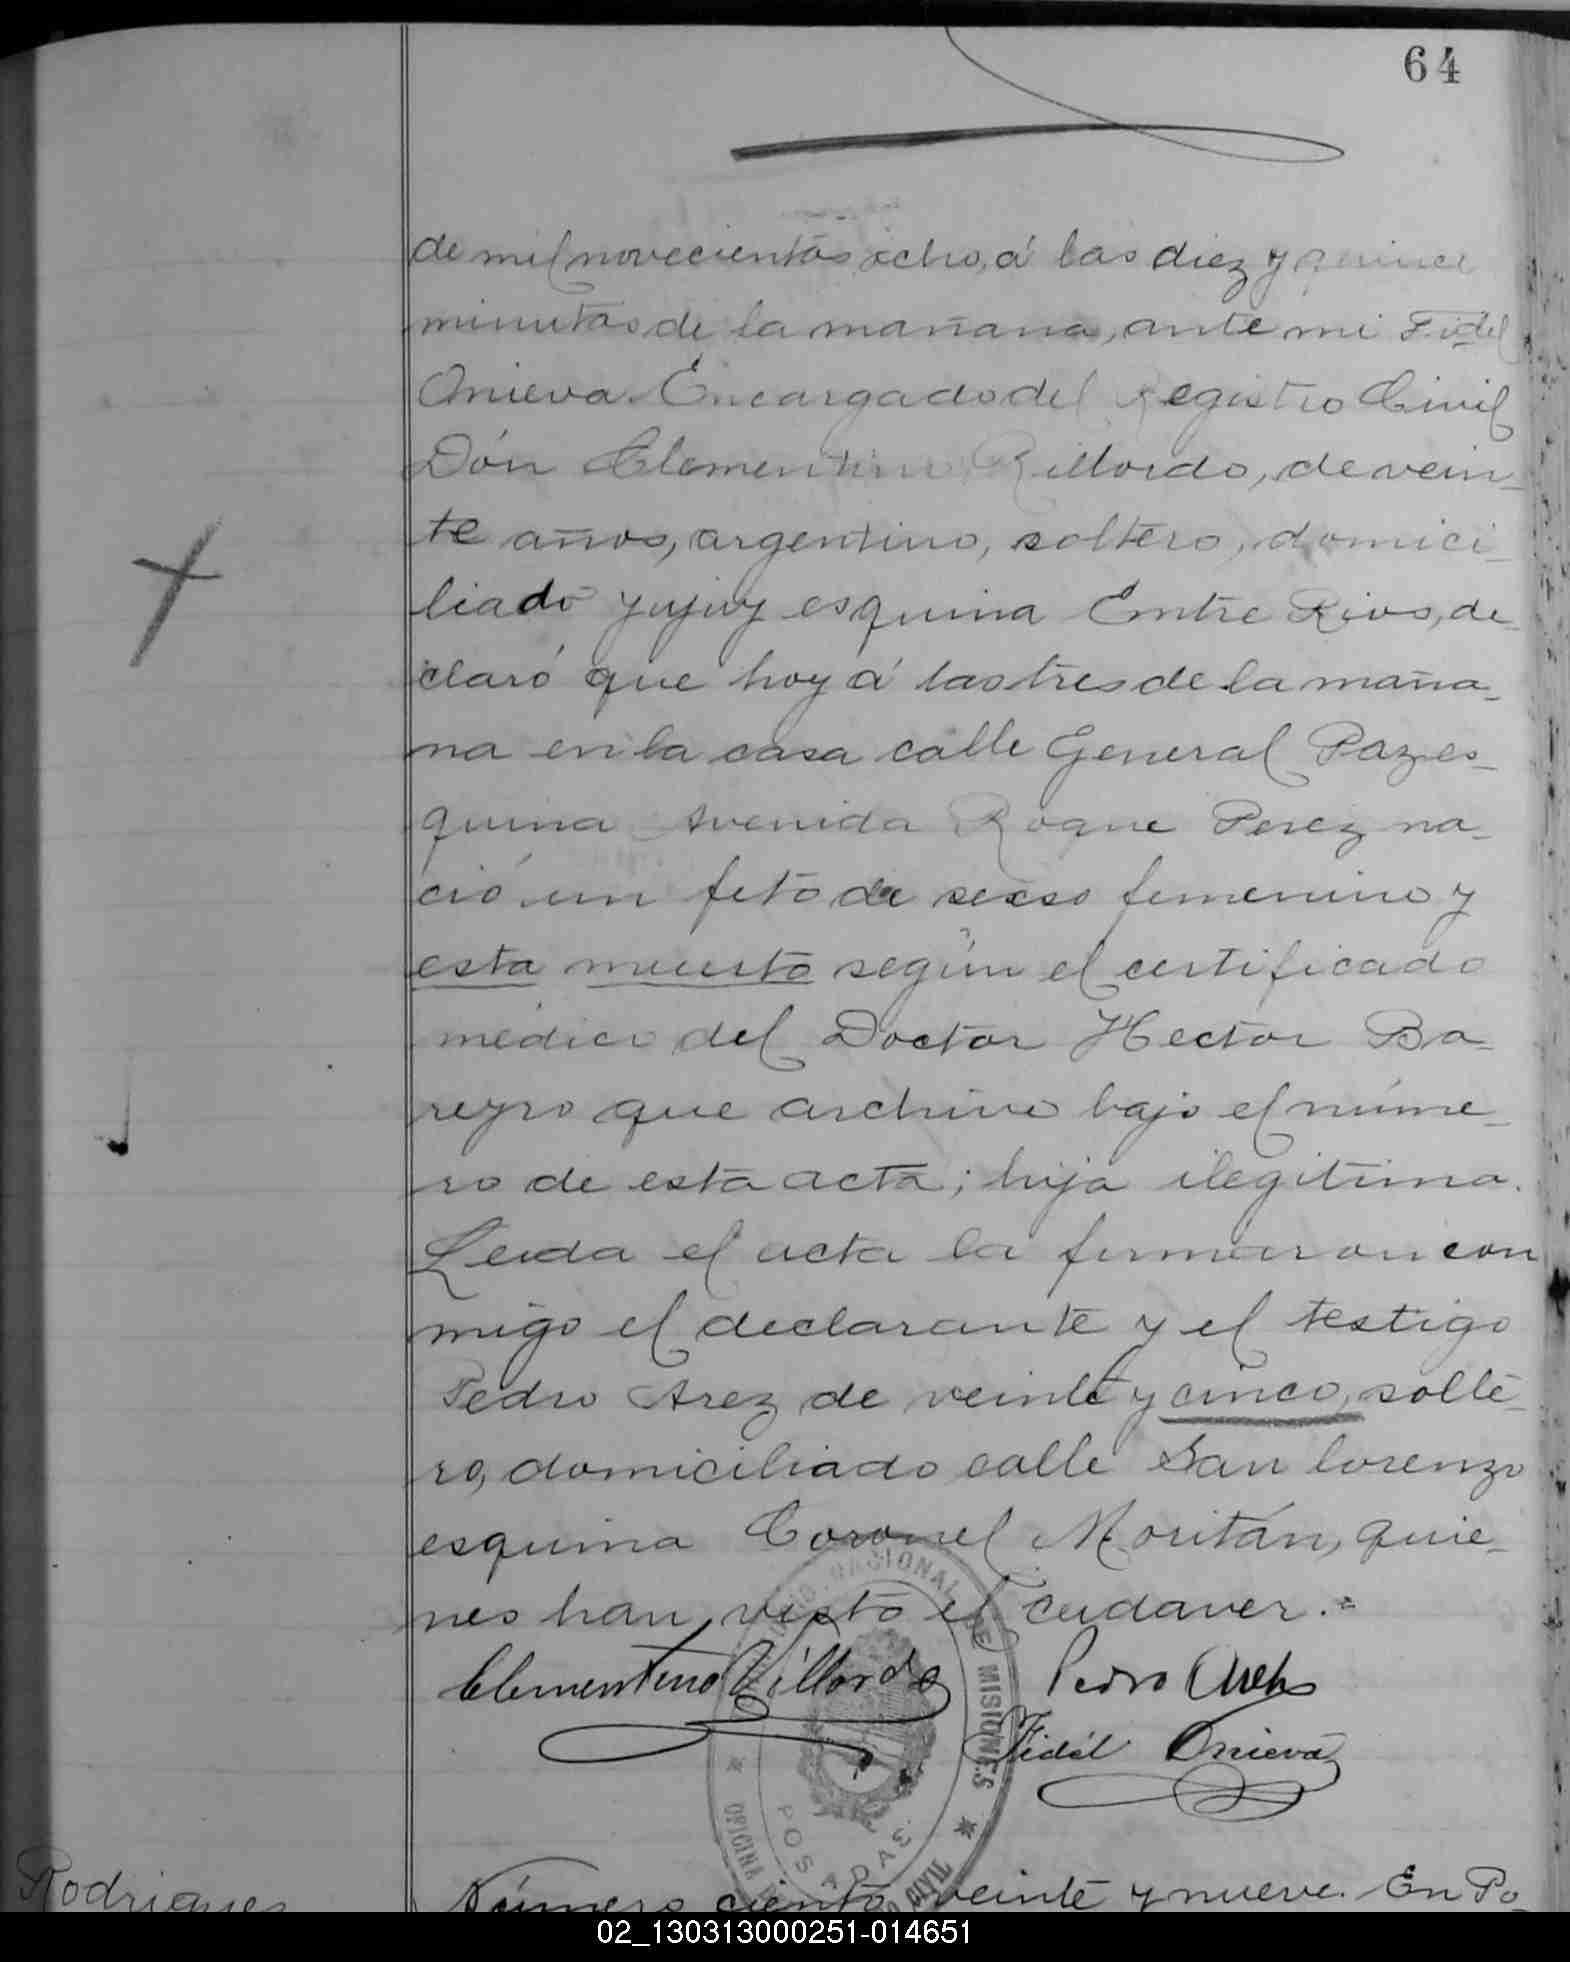 64
de mil novecientos ocho, á las diez y quince
minutos de la mañana, ante mi Fidel
Onieva Encargado del Registro Civil
Dón Clementino Rillordo, de vein-
te años, argentino, soltero, domici-
liado Yujuy esquina Entre Rios, de-
claró que hoy á las tres de la maña-
na en la casa calle General Paz es-
quina Avenida Roque Perez na-
ció un feto de secso femenino y
esta muerto según el certificado
médico del Doctor Hector Ba-
reyro que archivo bajo el núme-
ro de esta acta; hija ilegitima.
Leida el acta la firmaron con
migo el declarante y el testigo
Pedro Arez de veinte y cinco, solte-
ro, domiciliado calle San Lorenzo
esquina Coronel Moritán, quie-
nes han visto el cadaver.=
Clementino Villordo Pedro
Fidél Onieva
NACIONAL DE MISIONES
OFICINA CIVIL
POSADAS
Rodrigues
Número ciento veinte y nueve. En Po-
02_130313000251-014651